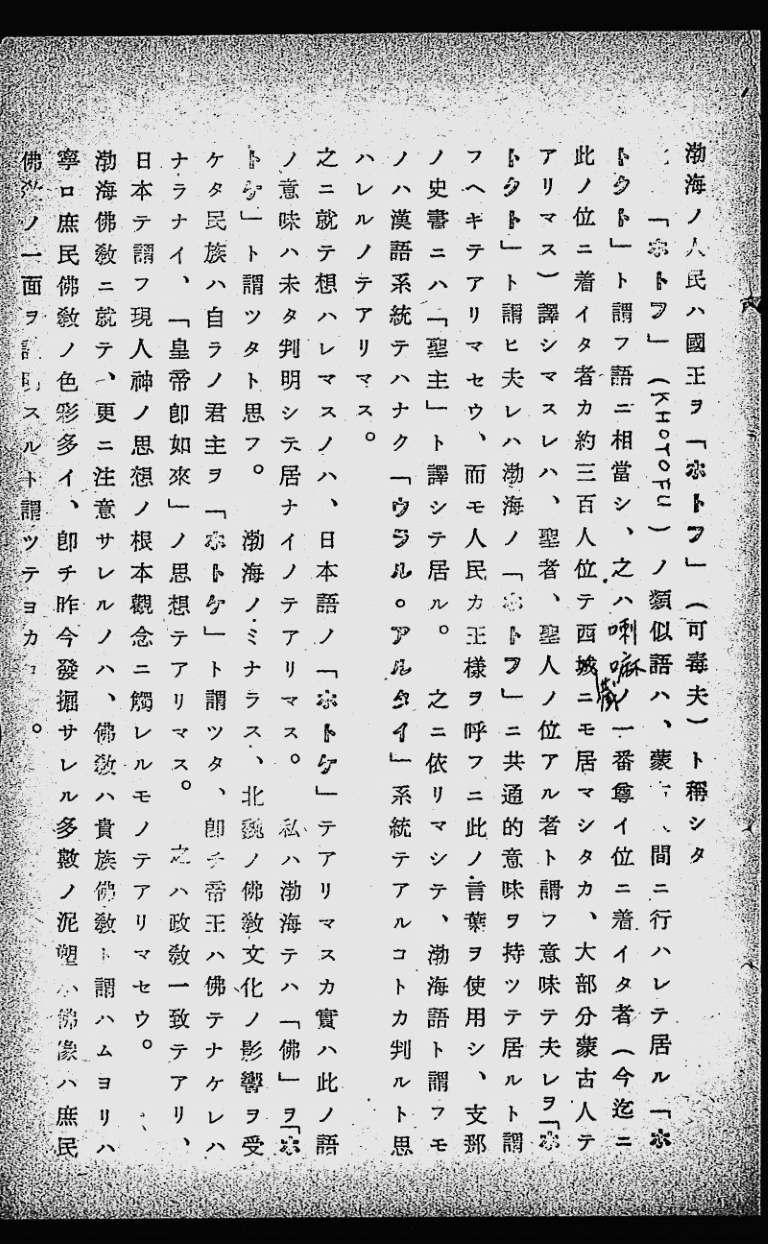 渤海ノ人民ハ國王ヲ「ホトフ」（可毒夫）ト稱シタ
「ホトフ」（KHOTOFU）ノ類似語ハ、蒙古人間ニ行ハレテ居ル「ホ
トクト」ト謂フ語ニ相當シ、之ハ喇嘛ノ一番尊イ位ニ着イタ者（今迄ニ
此ノ位ニ着イタ者カ約三百人位テ西藏ニモ居マシタカ、大部分蒙古人テ
アリマス）譯シマスレハ、聖者、聖人ノ位アル者ト謂フ意味テ夫レヲ「ホ
トクト」ト謂ヒ夫レハ渤海ノ「ホトフ」ニ共通的意味ヲ持ツテ居ルト謂
フヘキテアリマセウ、而モ人民カ王樣ヲ呼フニ此ノ言葉ヲ使用シ、支那
ノ史書ニハ「聖主」ト譯シテ居ル。之ニ依リマシテ、渤海語ト謂フモ
ノハ漢語系統テハナク「ウラル。アルタイ」系統テアルコトカ判ルト思
ハレルノテアリマス。
之ニ就テ想ハレマスノハ、日本語ノ「ホトケ」テアリマスカ實ハ此ノ語
ノ意味ハ未タ判明シテ居ナイノテアリマス。私ハ渤海テハ「佛」ヲ「ホ
トケ」ト謂ツタト思フ。渤海ノミナラス、北魏ノ佛敎文化ノ影響ヲ受
ケタ民族ハ自ラノ君主ヲ「ホトケ」ト謂ツタ、卽チ帝王ハ佛テナケレハ
ナラナイ、「皇帝卽如來」ノ思想テアリマス。之ハ政敎一致テアリ、
日本テ謂フ現人神ノ思想ノ根本觀念ニ觸レルモノテアリマセウ。
渤海佛敎ニ就テ、更ニ注意サレルノハ、佛敎ハ貴族佛敎ト謂ハムヨリハ
寧ロ庶民佛敎ノ色彩多イ、卽チ昨今發掘サレル多數ノ泥塑小佛像ハ庶民
佛敎ノ一面ヲ說明スルト謂ツテヨカ。